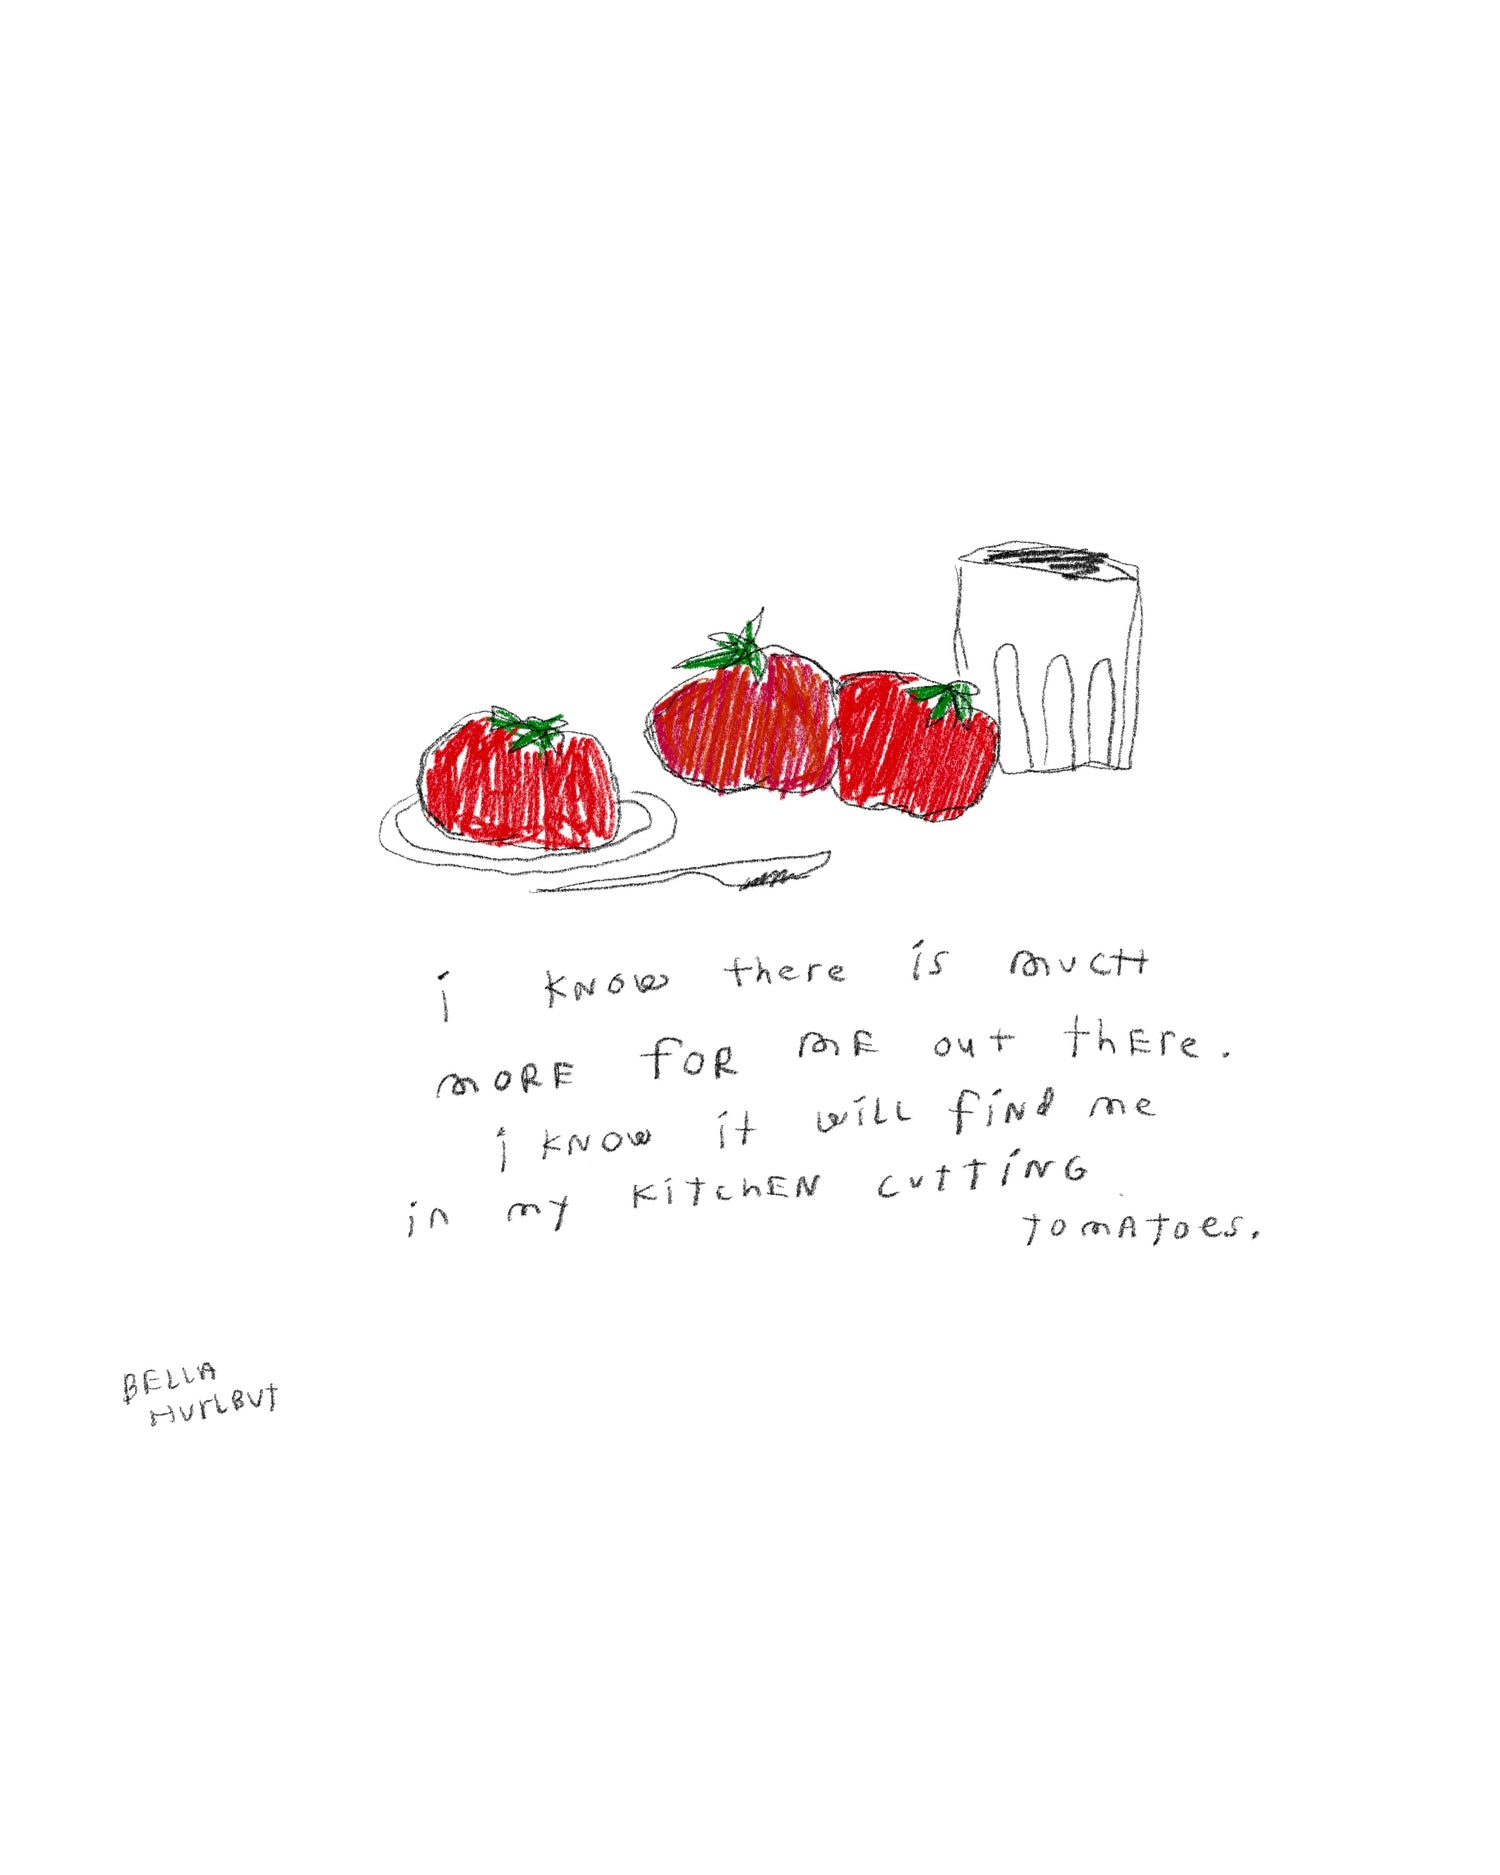 i KNOW there is mucH
mORE fOR mE out thEre.
i KNOW it will find me
in my KitchEN cuttiNG
tomAtoes.
BELLA
HurLBut